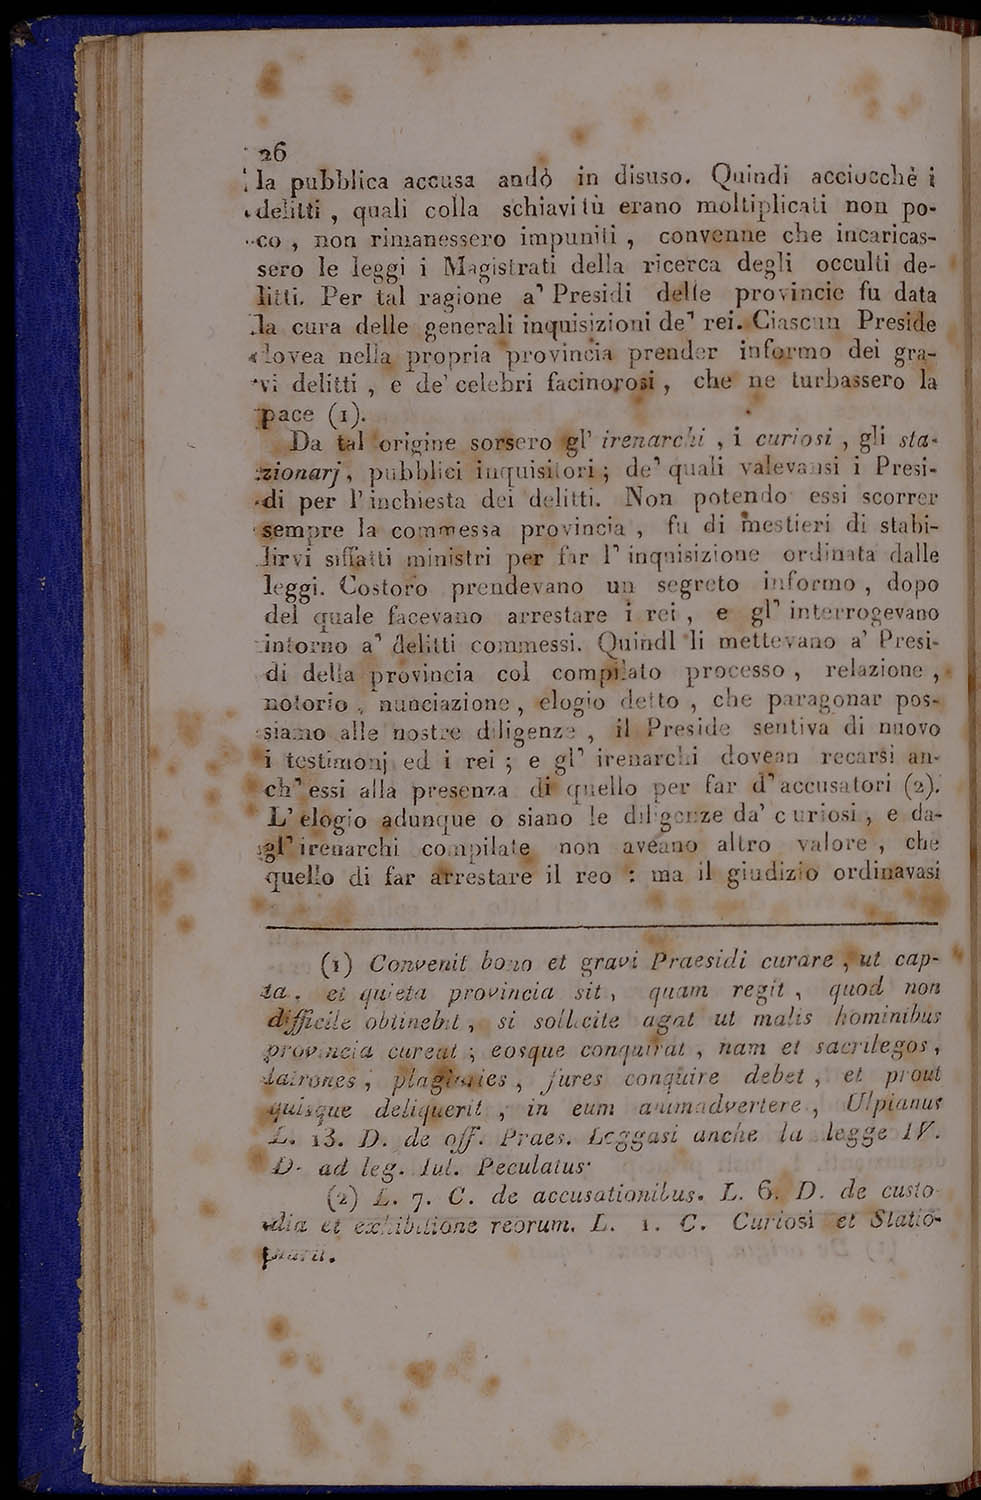 26
la pubblica accusa andò in disuso. Quindi acciocchè i
delitti, quali colla schiavitù erano moltiplicati non po-
co, non rimanessero impuniti, convenne che incaricas-
sero le leggi i Magistrati della ricerca degli occulti de-
litti. Per tal ragione a' Presidi delle provincie fu data
la cura delle generali inquisizioni de' rei. Ciascun Preside
dovea nella propria provincia prender informo dei gra-
vi delitti, e de' celebri facinorosi, che ne turbassero la
pace (1).
Da tal origine sorsero gl' irenarchi, i curiosi, gli sta-
zionarj, pubblici inquisitori; de' quali valevansi i Presi-
di per l'inchiesta dei delitti. Non potendo essi scorrer
sempre la commessa provincia, fu di mestieri di stabi-
lirvi siffatti ministri per far l' inquisizione ordinata dalle
leggi. Costoro prendevano un segreto informo, dopo
del quale facevano arrestare i rei, e gl' interrogevano
intorno a' delitti commessi. Quindl li mettevano a' Presi-
di della provincia col compilato processo, relazione,
notorio, nunciazione, elogio detto, che paragonar pos-
siamo alle nostre diligenze, il Preside sentiva di nuovo
i testimonj ed i rei; e gl' irenarchi dovean recarsi an-
ch' essi alla presenza di quello per far d' accusatori (2).
L' elogio adunque o siano le diligenze da' curiosi, e da-
gl' irenarchi compilate non avéano altro valore, che
quello di far arrestare il reo : ma il giudizio ordinavasi
(1) Convenit bono et gravi Praesidi curare, ut cap-
ta, et quieta provincia sit, quam regit, quod non
difficile obtinebit, si sollicite agat ut malis hominibus
provincia careat; eosque conquirat, nam et sacrilegos,
latrones, plagiaries, fures conquire debet, et prout
quisque deliquerit, in eum animadvertere, Ulpianus
L. 13. D. de off. Praes. Leggasi anche la legge IV.
D. ad leg. Jul. Peculatus.
(2) L. 7. C. de accusationibus. L. 6. D. de custo-
dia et exhibitione reorum. L. 1. C. Curiosi et Statio-